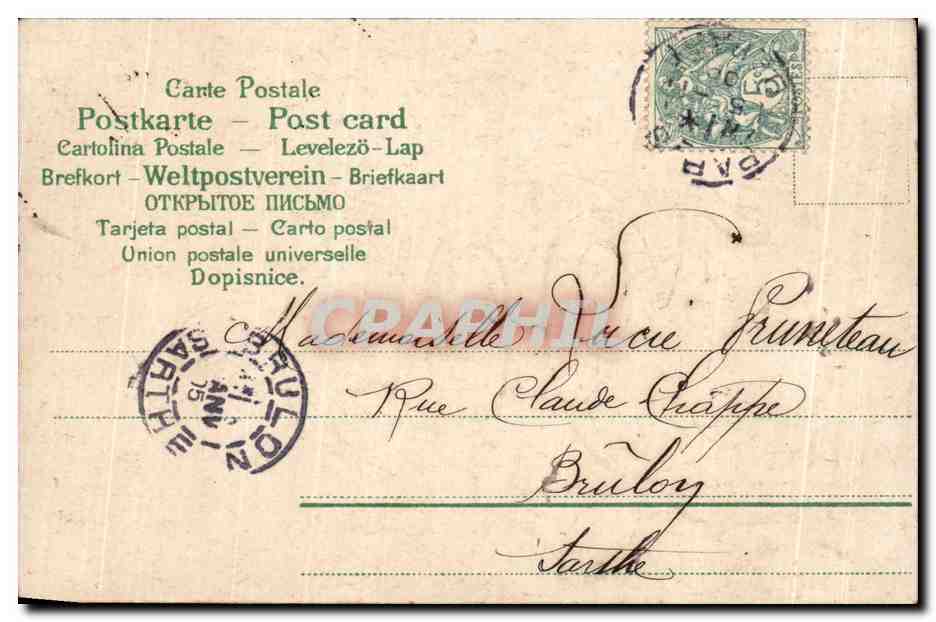 Carte Postale
Postkarte – Post card
Cartolina Postale — Levelezö-Lap
Brefkort – Weltpostverein – Briefkaart
ОТКРЫТОЕ ПИСЬМО
Tarjeta postal — Carto postal
Union postale universelle
Dopisnice.
5
PAR
CPAPHIL
Mademoiselle Lucie Pruneteau
Rue Claude Chappe
Brûlon
Sarthe
BRULON
SARTHE
05